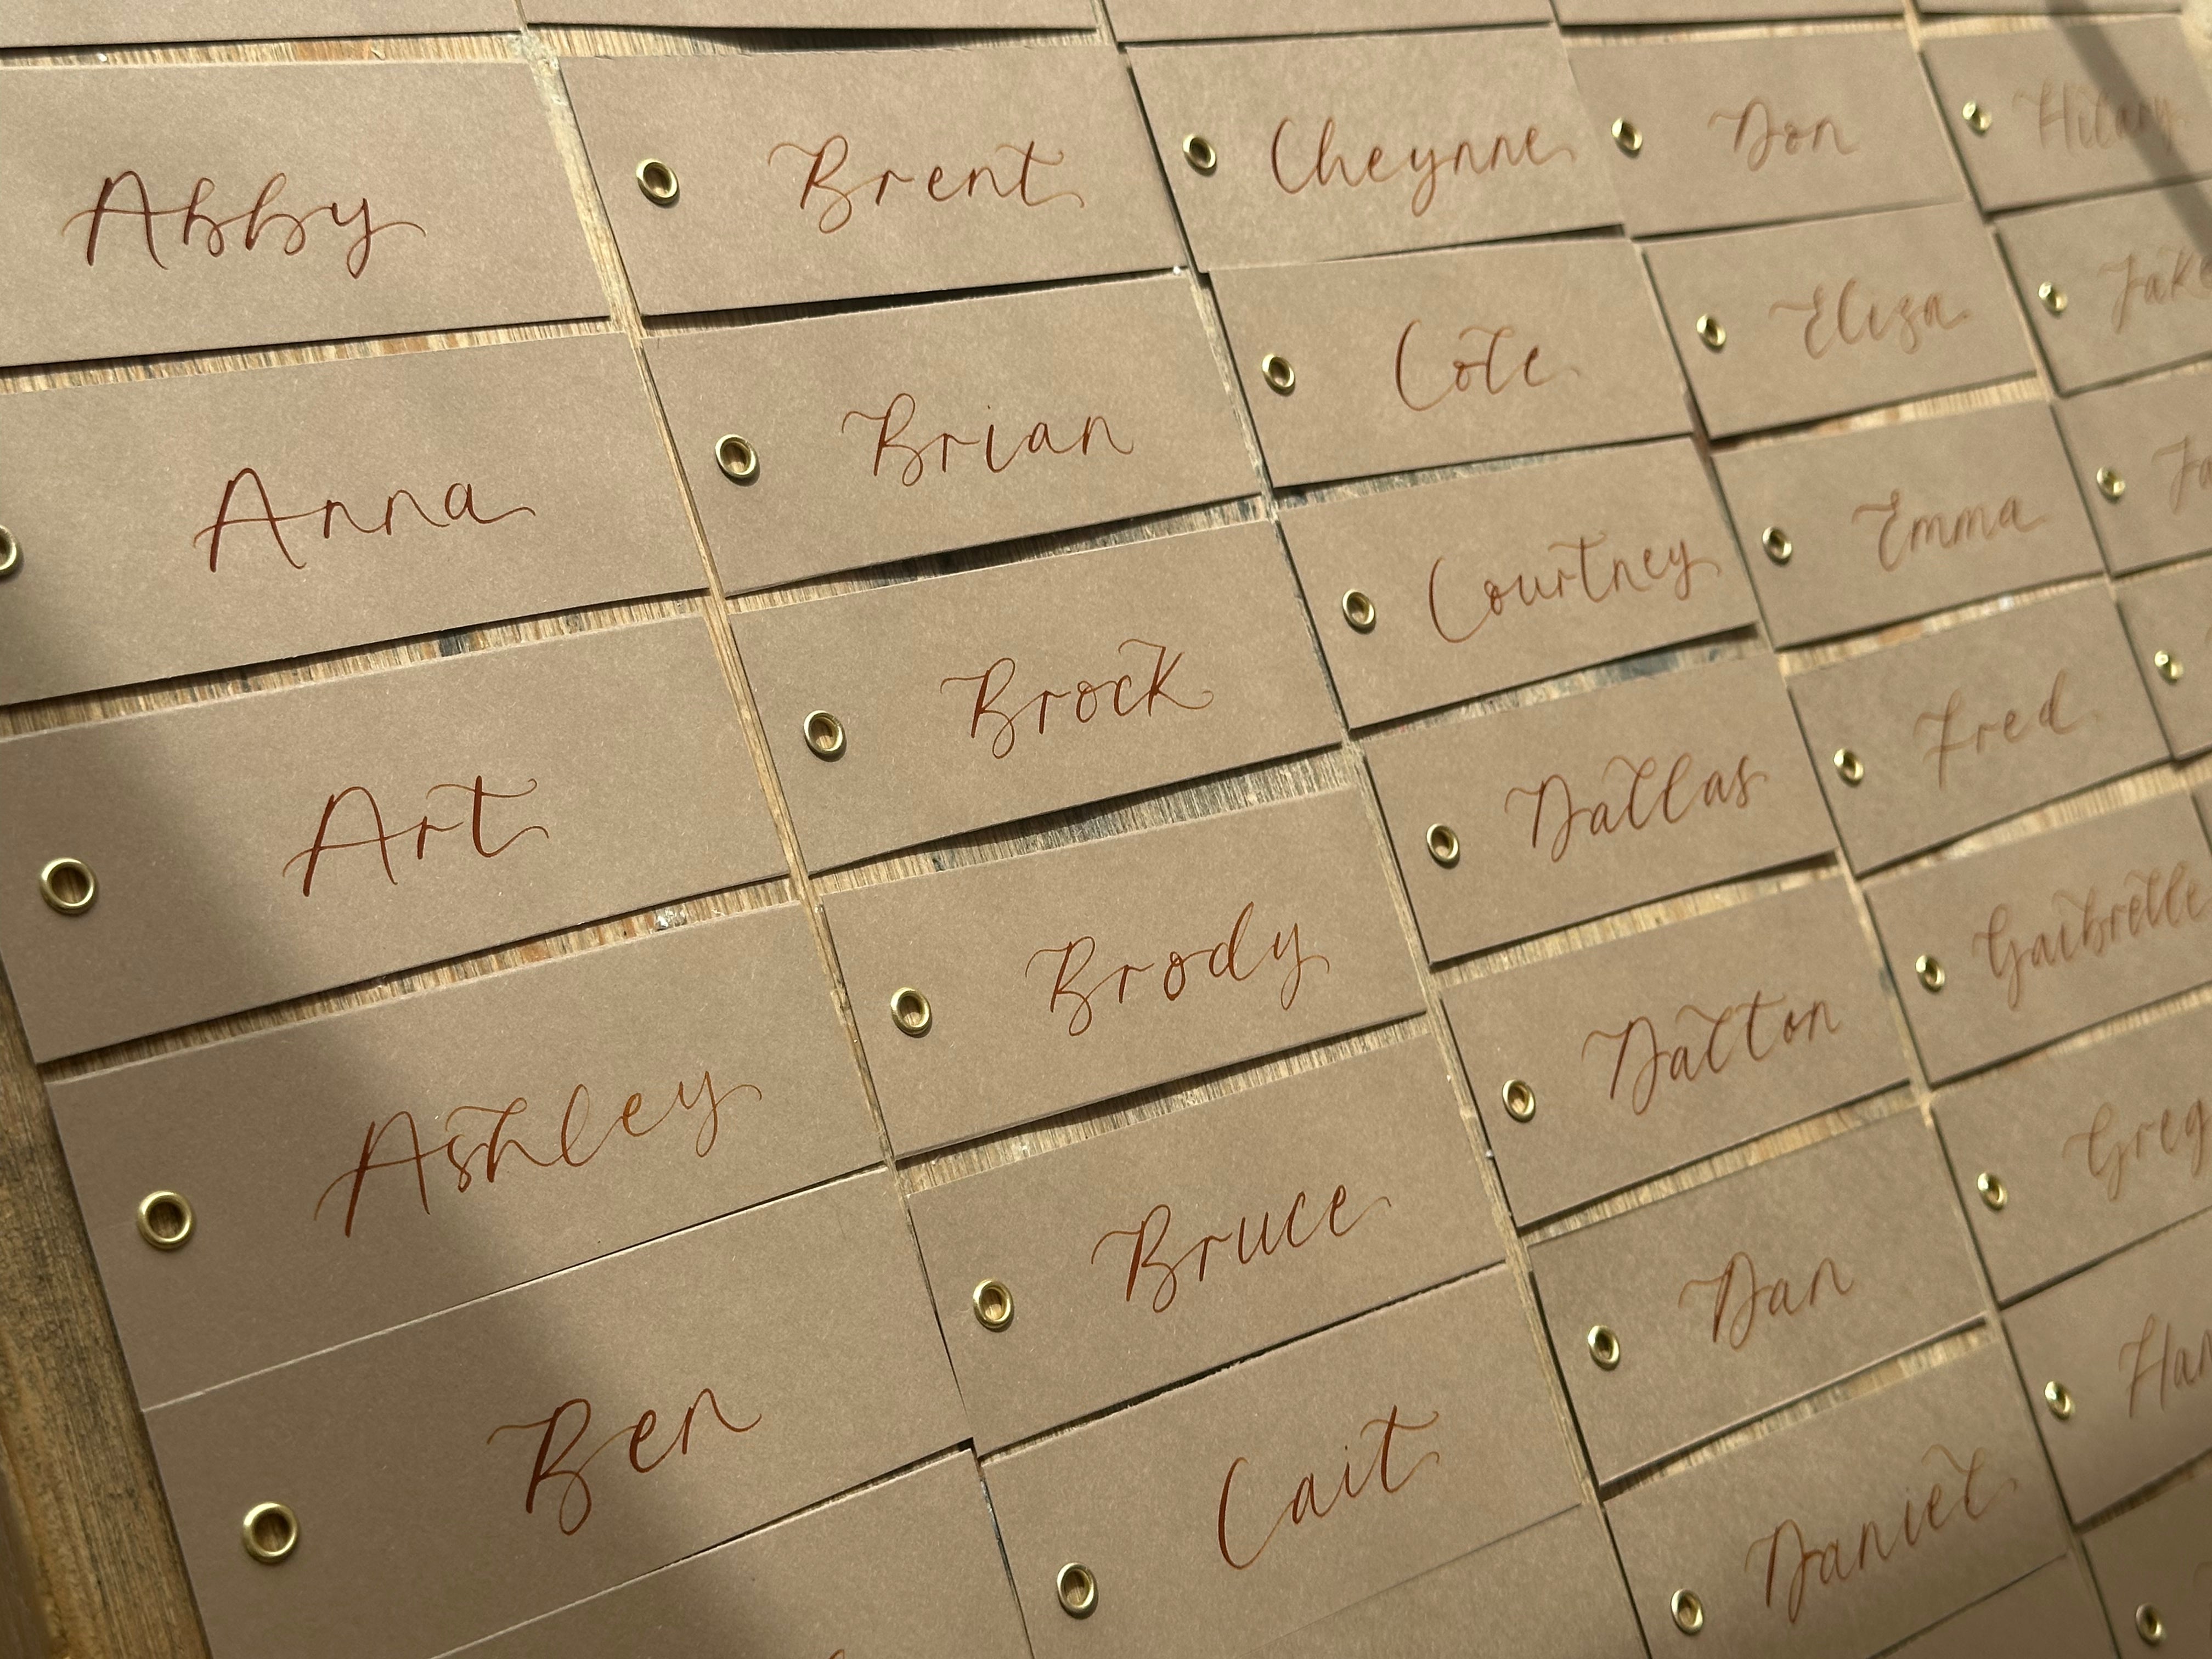 Abby
Anna
Art
Ashley
Ben
Brent
Brian
Brock
Brody
Bruce
Cait
Cheynne
Cole
Courtney
Dallas
Dalton
Dan
Daniel
Don
Eliza
Emma
Fred
Gaibrelle
Greg
Hilary